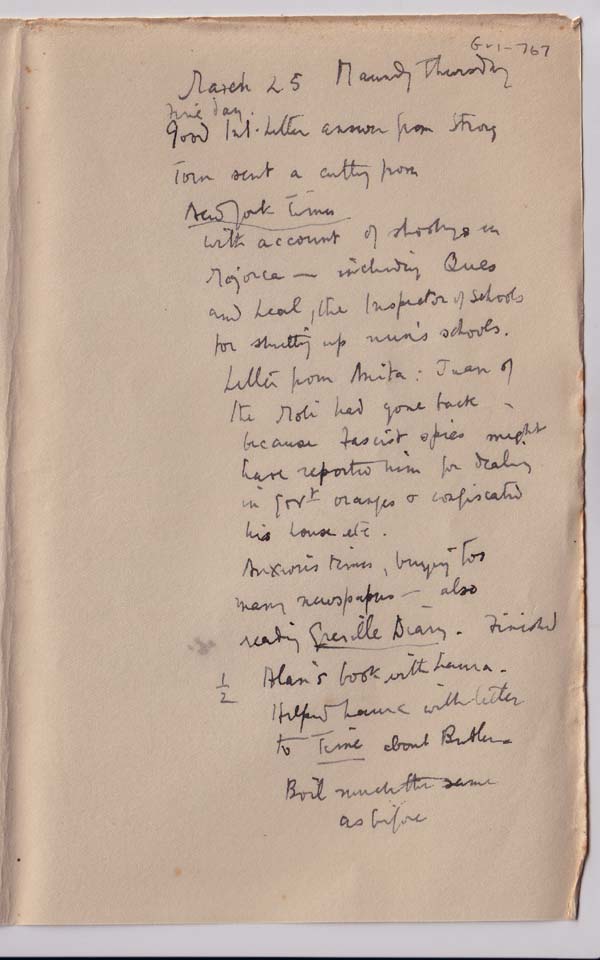 GV1-767
March 25 Maundy Thursday
Fine day.
Good Int. Letter answer from Strong
Tom sent a cutting from
New York Times
with account of shootings in
Majorca — including Ques
and Leal, the Inspector of Schools
for shutting up nun's schools.
Letter from Anita: Juan of
the Moli had gone back
because fascist spies might
have reported him for dealing
in Govt oranges & confiscated
his house etc.
Anxious times, buying too
many newspapers — also
reading Greville Diary. Finished
1/2 Alan's book with Laura.
Helped Laura with letter
to Time about Butler.
Boil much the same
as before